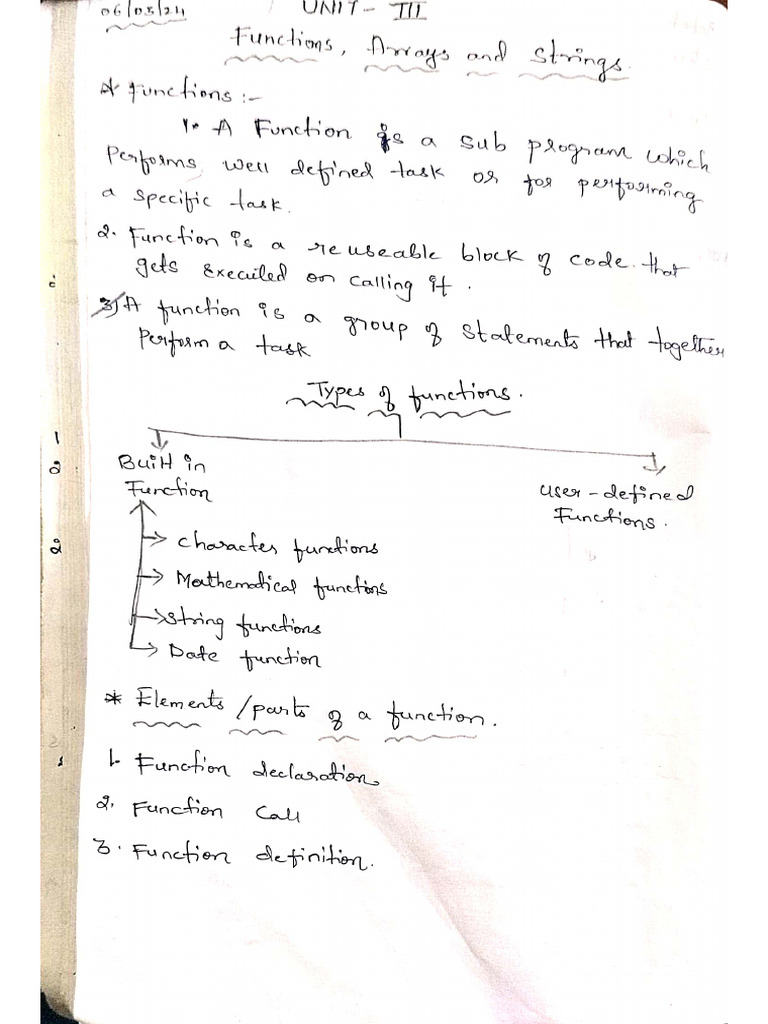 06/03/24
UNIT - III
Functions, Arrays and Strings.
* Functions :-
1. A Function is a sub program which
Performs well defined task or for performing
a specific task.
2. Function is a reuseable block of code that
gets executed on calling it.
3) A function is a group of statements that together
Perform a task
Types of functions.
Built in
Function
User-defined
Functions.
Character functions
Mathematical functions
String functions
Date function
* Elements/parts of a function.
1. Function declaration
2. Function Call
3. Function definition.